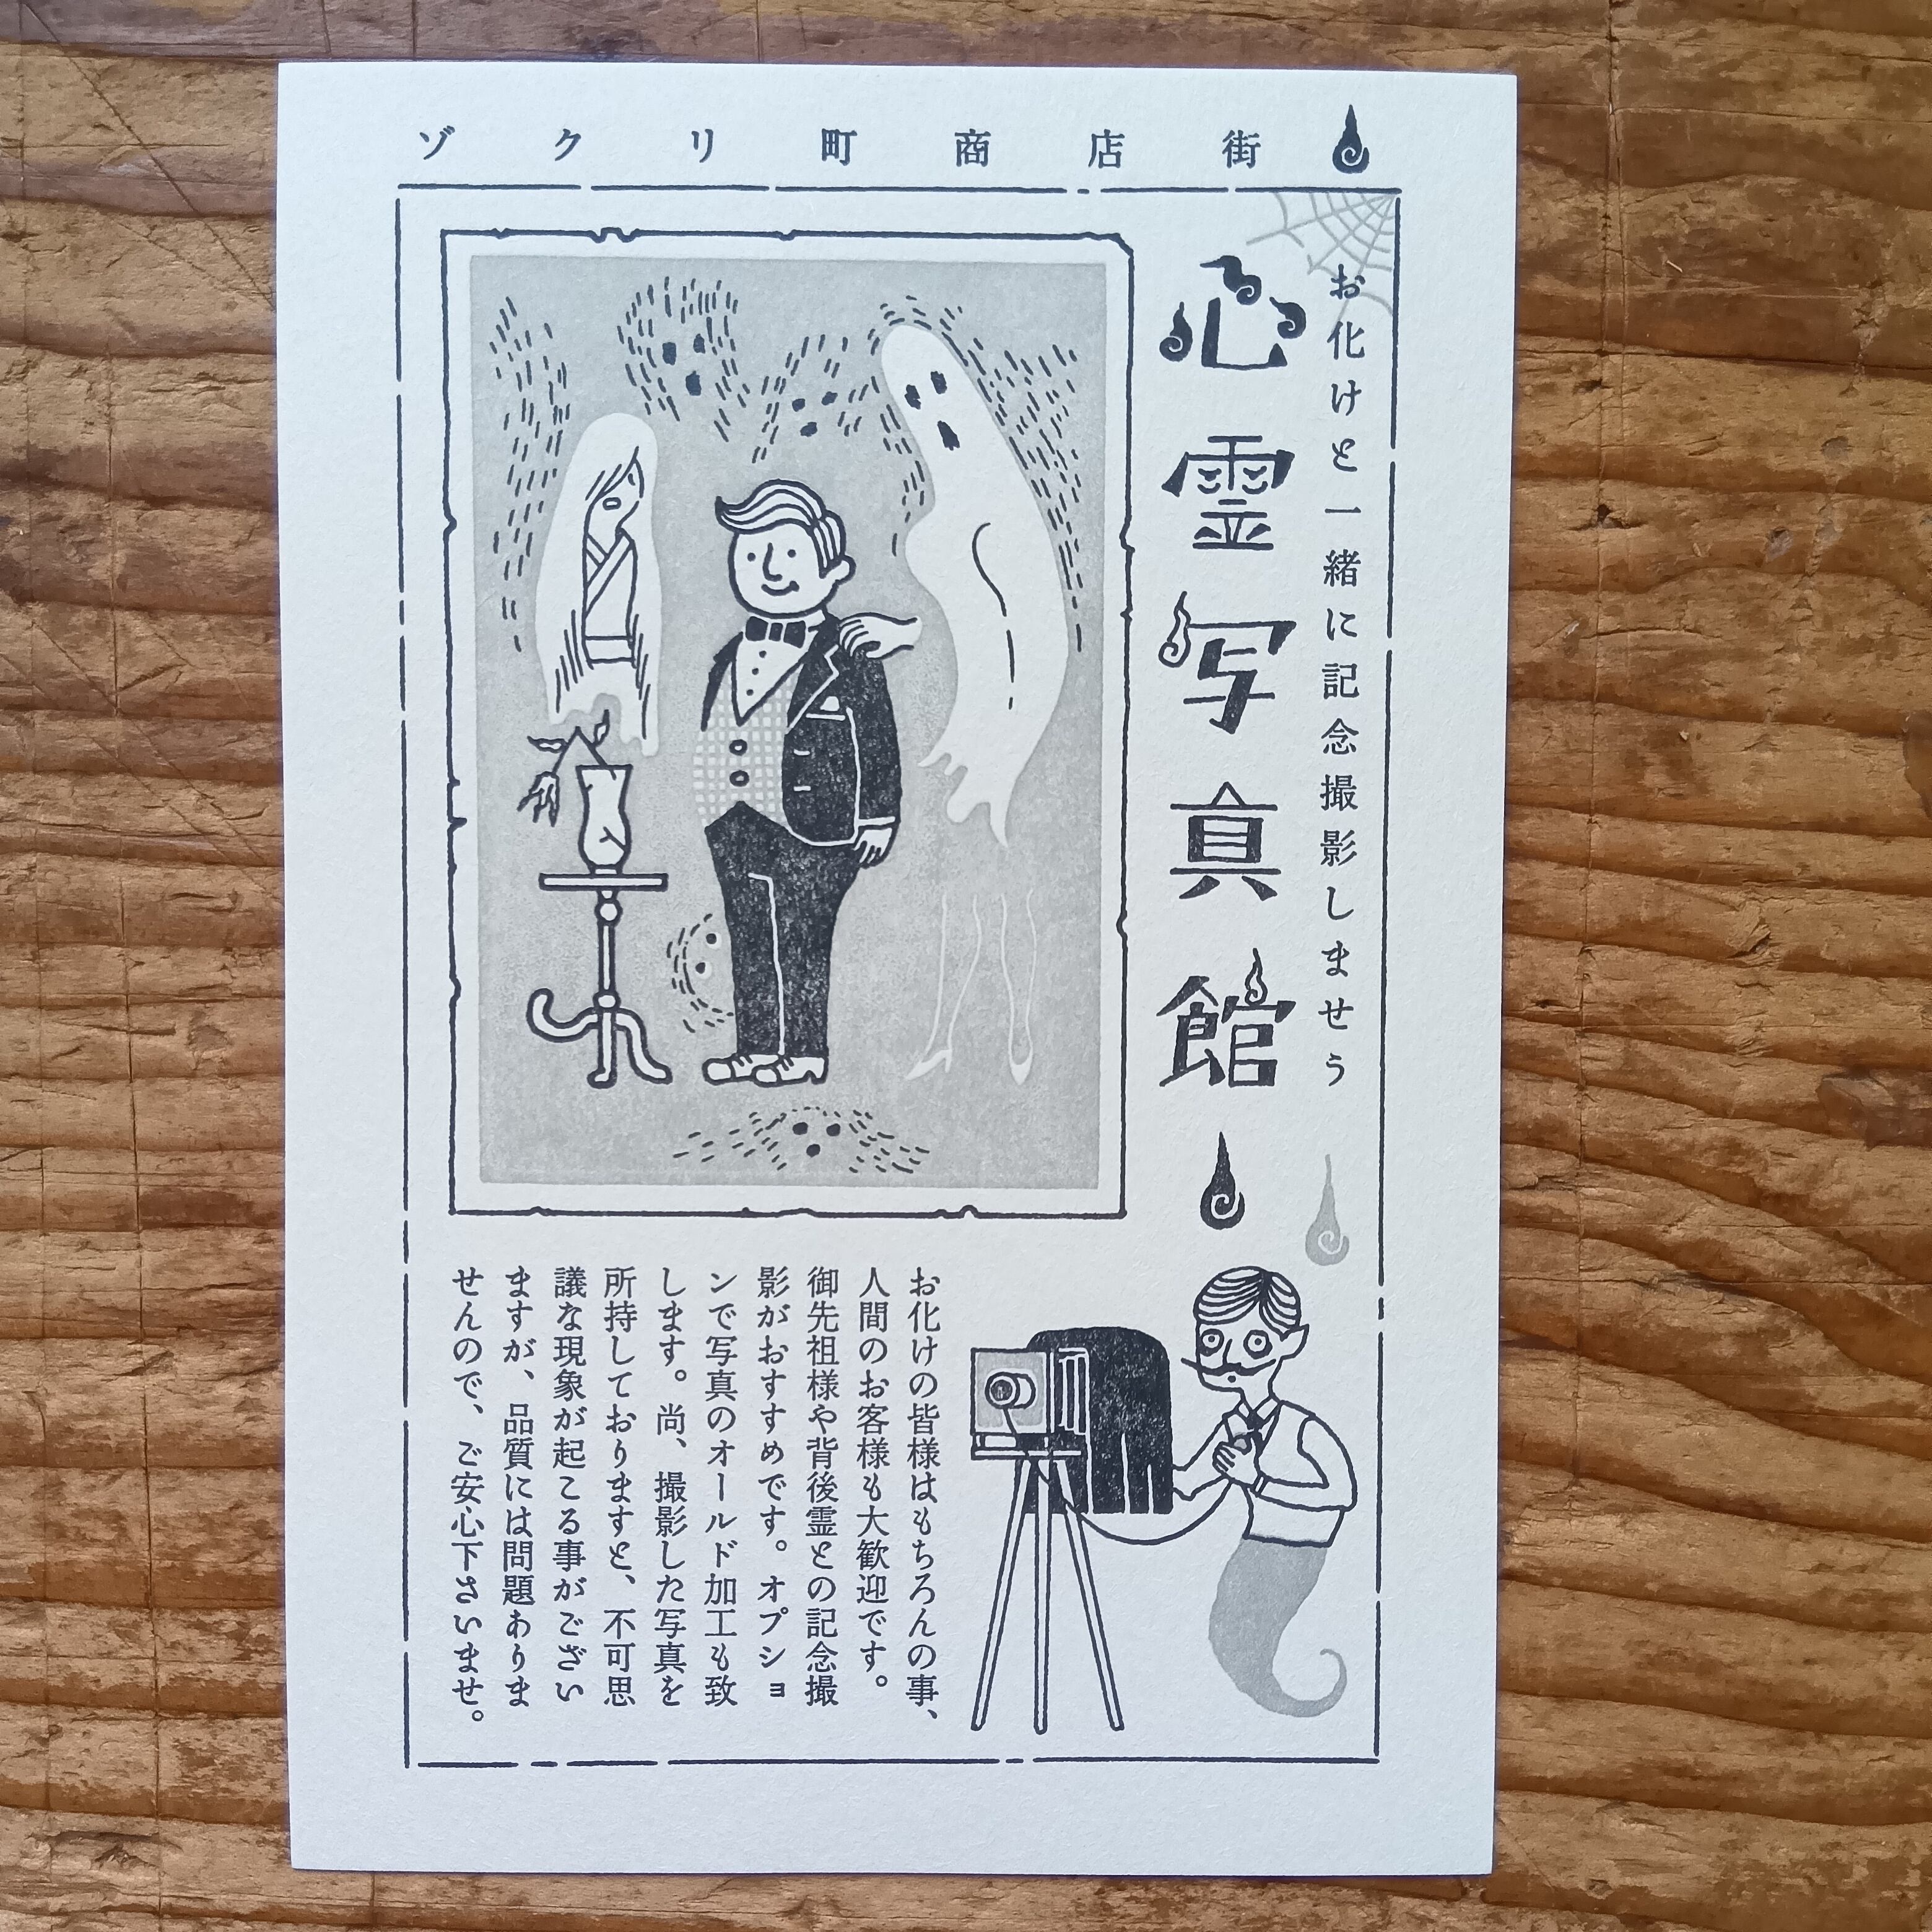 ゾクリ町商店街
お化けと一緒に記念撮影しませう
心霊写真館
お化けの皆様はもちろんの事、
人間のお客様も大歓迎です。
御先祖様や背後霊との記念撮
影がおすすめです。オプショ
ンで写真のオールド加工も致
します。尚、撮影した写真を
所持しておりますと、不可思
議な現象が起こる事がござい
ますが、品質には問題ありま
せんので、ご安心下さいませ。